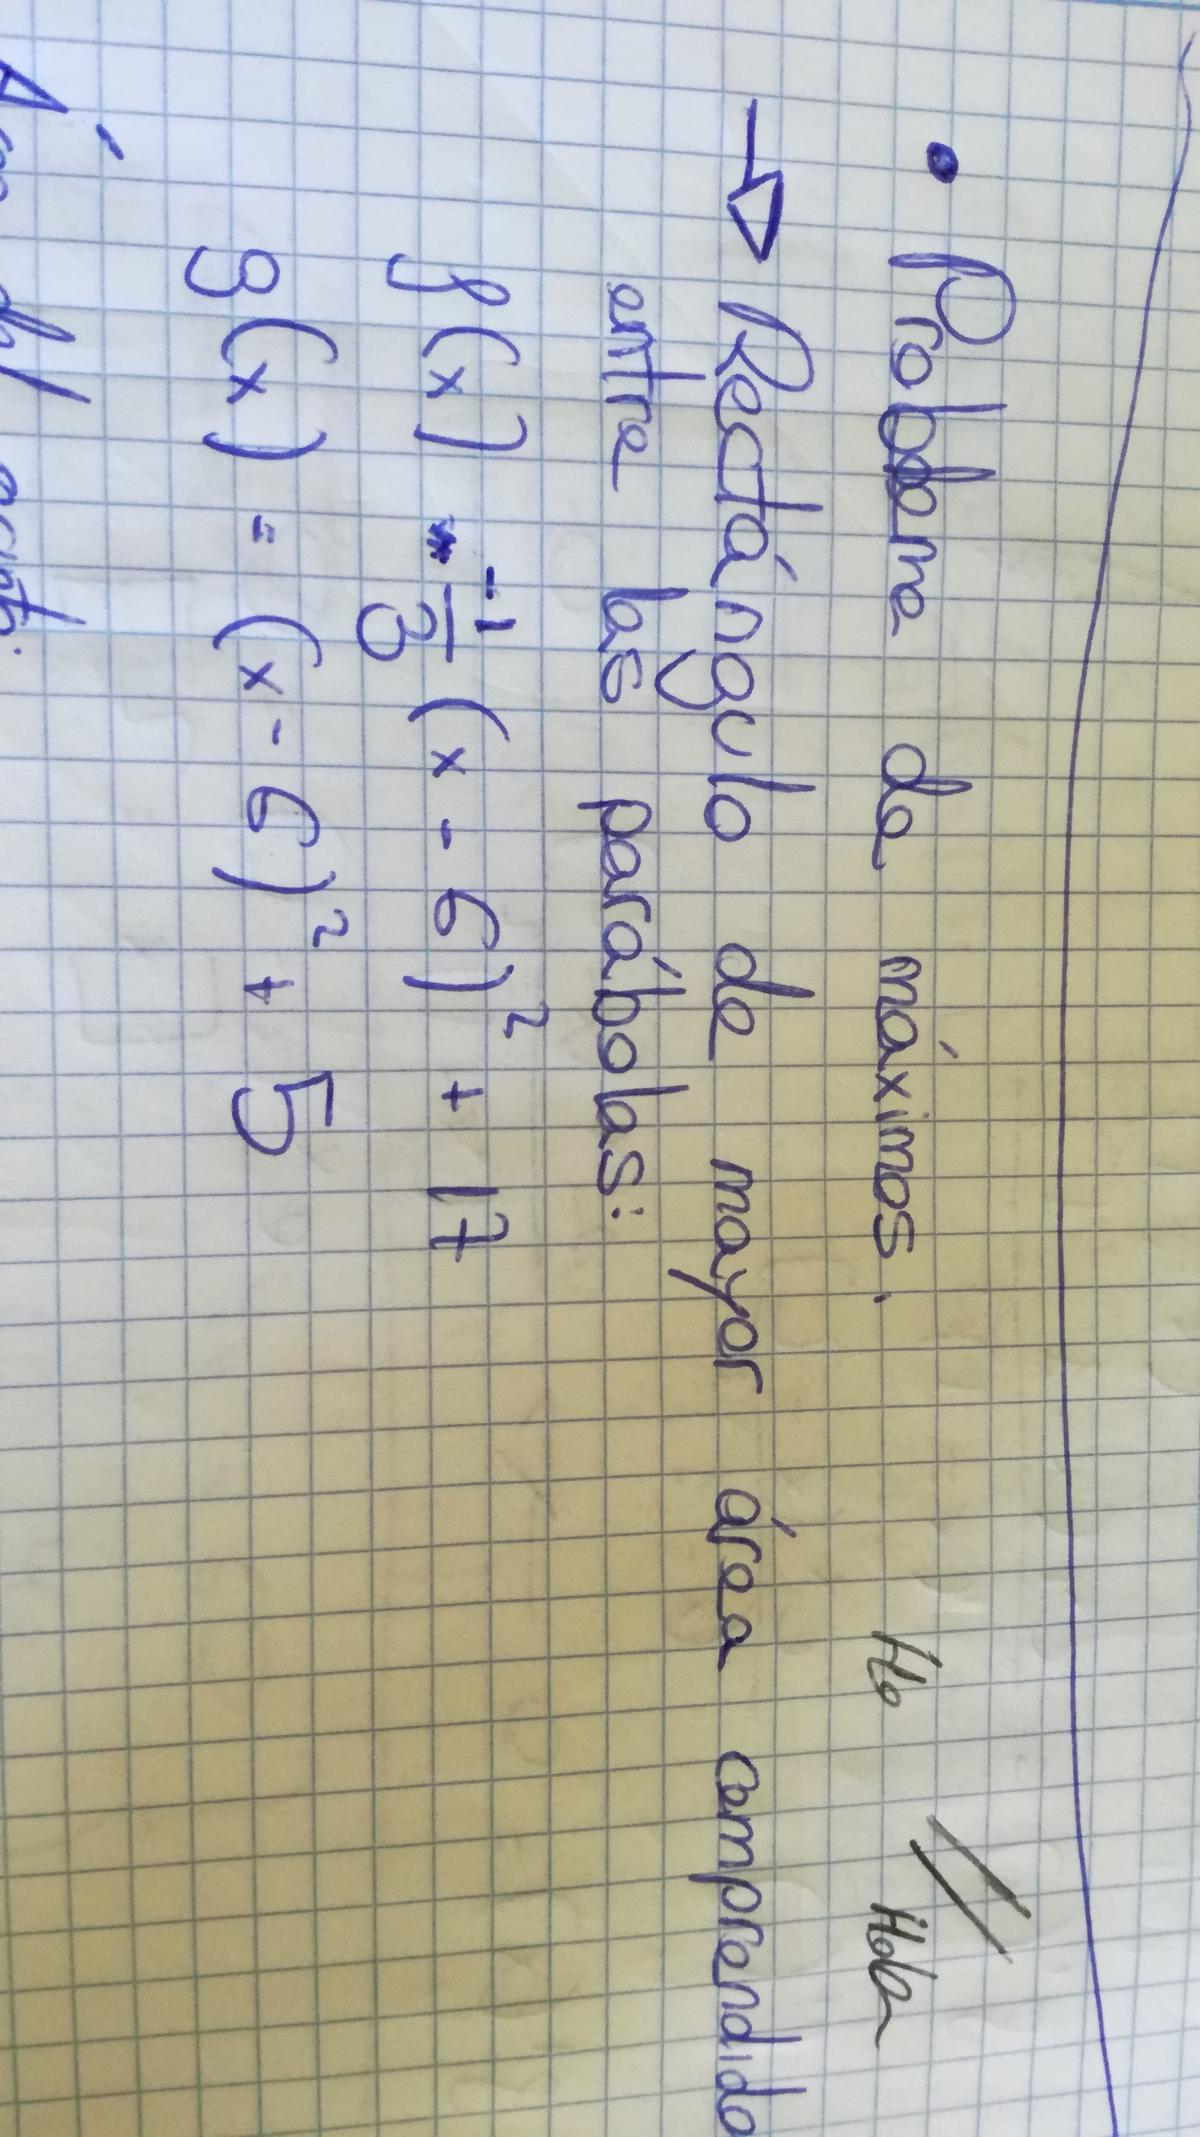 • Problema de máximos. Ho // Hola
→ Rectángulo de mayor área comprendido
entre las parábolas:
f(x) = -1/3 (x - 6)² + 17
g(x) = (x - 6)² + 5
Área del